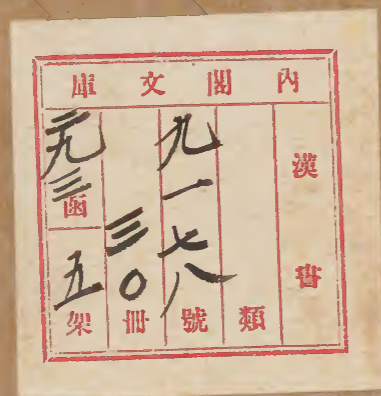 內閣文庫
漢書
類
九一七八號
三〇冊
二九三函
五架